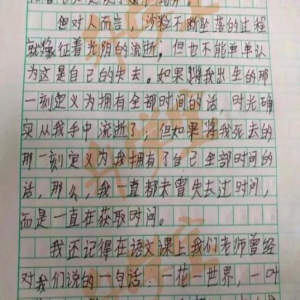 但对人而言，沙粒不断坠落的过程
就像征着光阴的流逝，但也不能单单认
为这是自己的失去。如果将我出生的那
一刻定义为拥有全部时间的话，时光确
实从我手中流逝了，但如果将我死去的
那一刻定义为我拥有了自己全部时间的
话，那么，我一直都未曾失去过时间，
而是一直在获取时间。
我还记得在语文课上我们老师曾经
对我们说的一句话：一花一世界，一叶